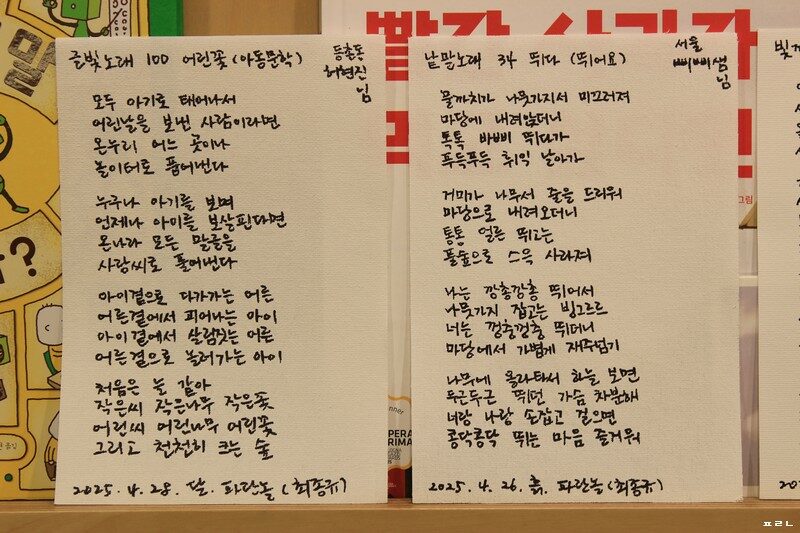 글빛노래 100 어린꽃 (아동문학)
등촌동
허현진
님
모두 아기로 태어나서
어린날을 보낸 사람이라면
온누리 어느 곳이나
놀이터로 품어낸다
누구나 아기를 보며
언제나 아이를 보살핀다면
온나라 모든 말글을
사랑씨로 풀어낸다
아이곁으로 다가가는 어른
어른곁에서 피어나는 아이
아이곁에서 살림짓는 어른
어른곁으로 놀러가는 아이
처음은 늘 같아
작은씨 작은나무 작은꽃
어린씨 어린나무 어린꽃
그리고 천천히 크는 숲
2025.4.28. 달. 파란놀 (최종규)
낱말노래 34 뛰다 (뛰어요)
서울
삐삐쌤
님
물까치가 나뭇가지서 미끄러져
마당에 내려앉더니
톡톡 바삐 뛰다가
푸득푸득 휘익 날아가
거미가 나무서 줄을 드리워
마당으로 내려오더니
통통 얼른 뛰고는
풀숲으로 스윽 사라져
나는 깡총깡총 뛰어서
나뭇가지 잡고는 빙그르르
너는 껑충껑충 뛰더니
마당에서 가볍게 재주넘기
나무에 올라타서 하늘 보면
두근두근 뛰던 가슴 차분해
너랑 나랑 손잡고 걸으면
콩닥콩닥 뛰는 마음 즐거워
2025.4.26. 흙. 파란놀 (최종규)
빨간 사과가
ㅍㄹㄴ